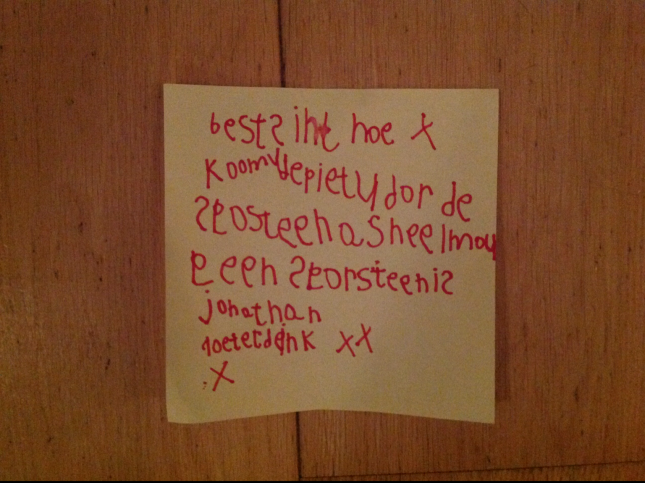 beste siht hoe x
koomt depiety dor de
sposteen asheel mou
e een sporsteenis
jonathan
doeterdink xx
x